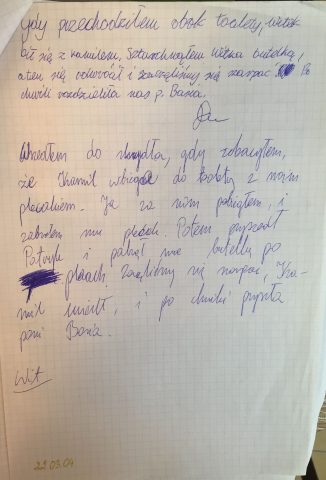 Gdy przechodziłem obok toalety, Witek
bił się z Kamilem. Szturchnąłem Witka butelką,
a ten się odwrócił i zaczęliśmy się szarpać. Po
chwili rozdzieliła nas p. Basia.
Wszedłem do, gdy zobaczyłem,
że Kamil wbiega do toalety z moim
plecakiem. Ja za nim pobiegłem, i
zabrałem mu plecak. Potem przyszedł
Patryk i mnie butelką po
plecach. Zaczęliśmy się szarpać, Ka-
mil uciekł, i po chwili przyszła
pani Basia.
Wit
22.03.04